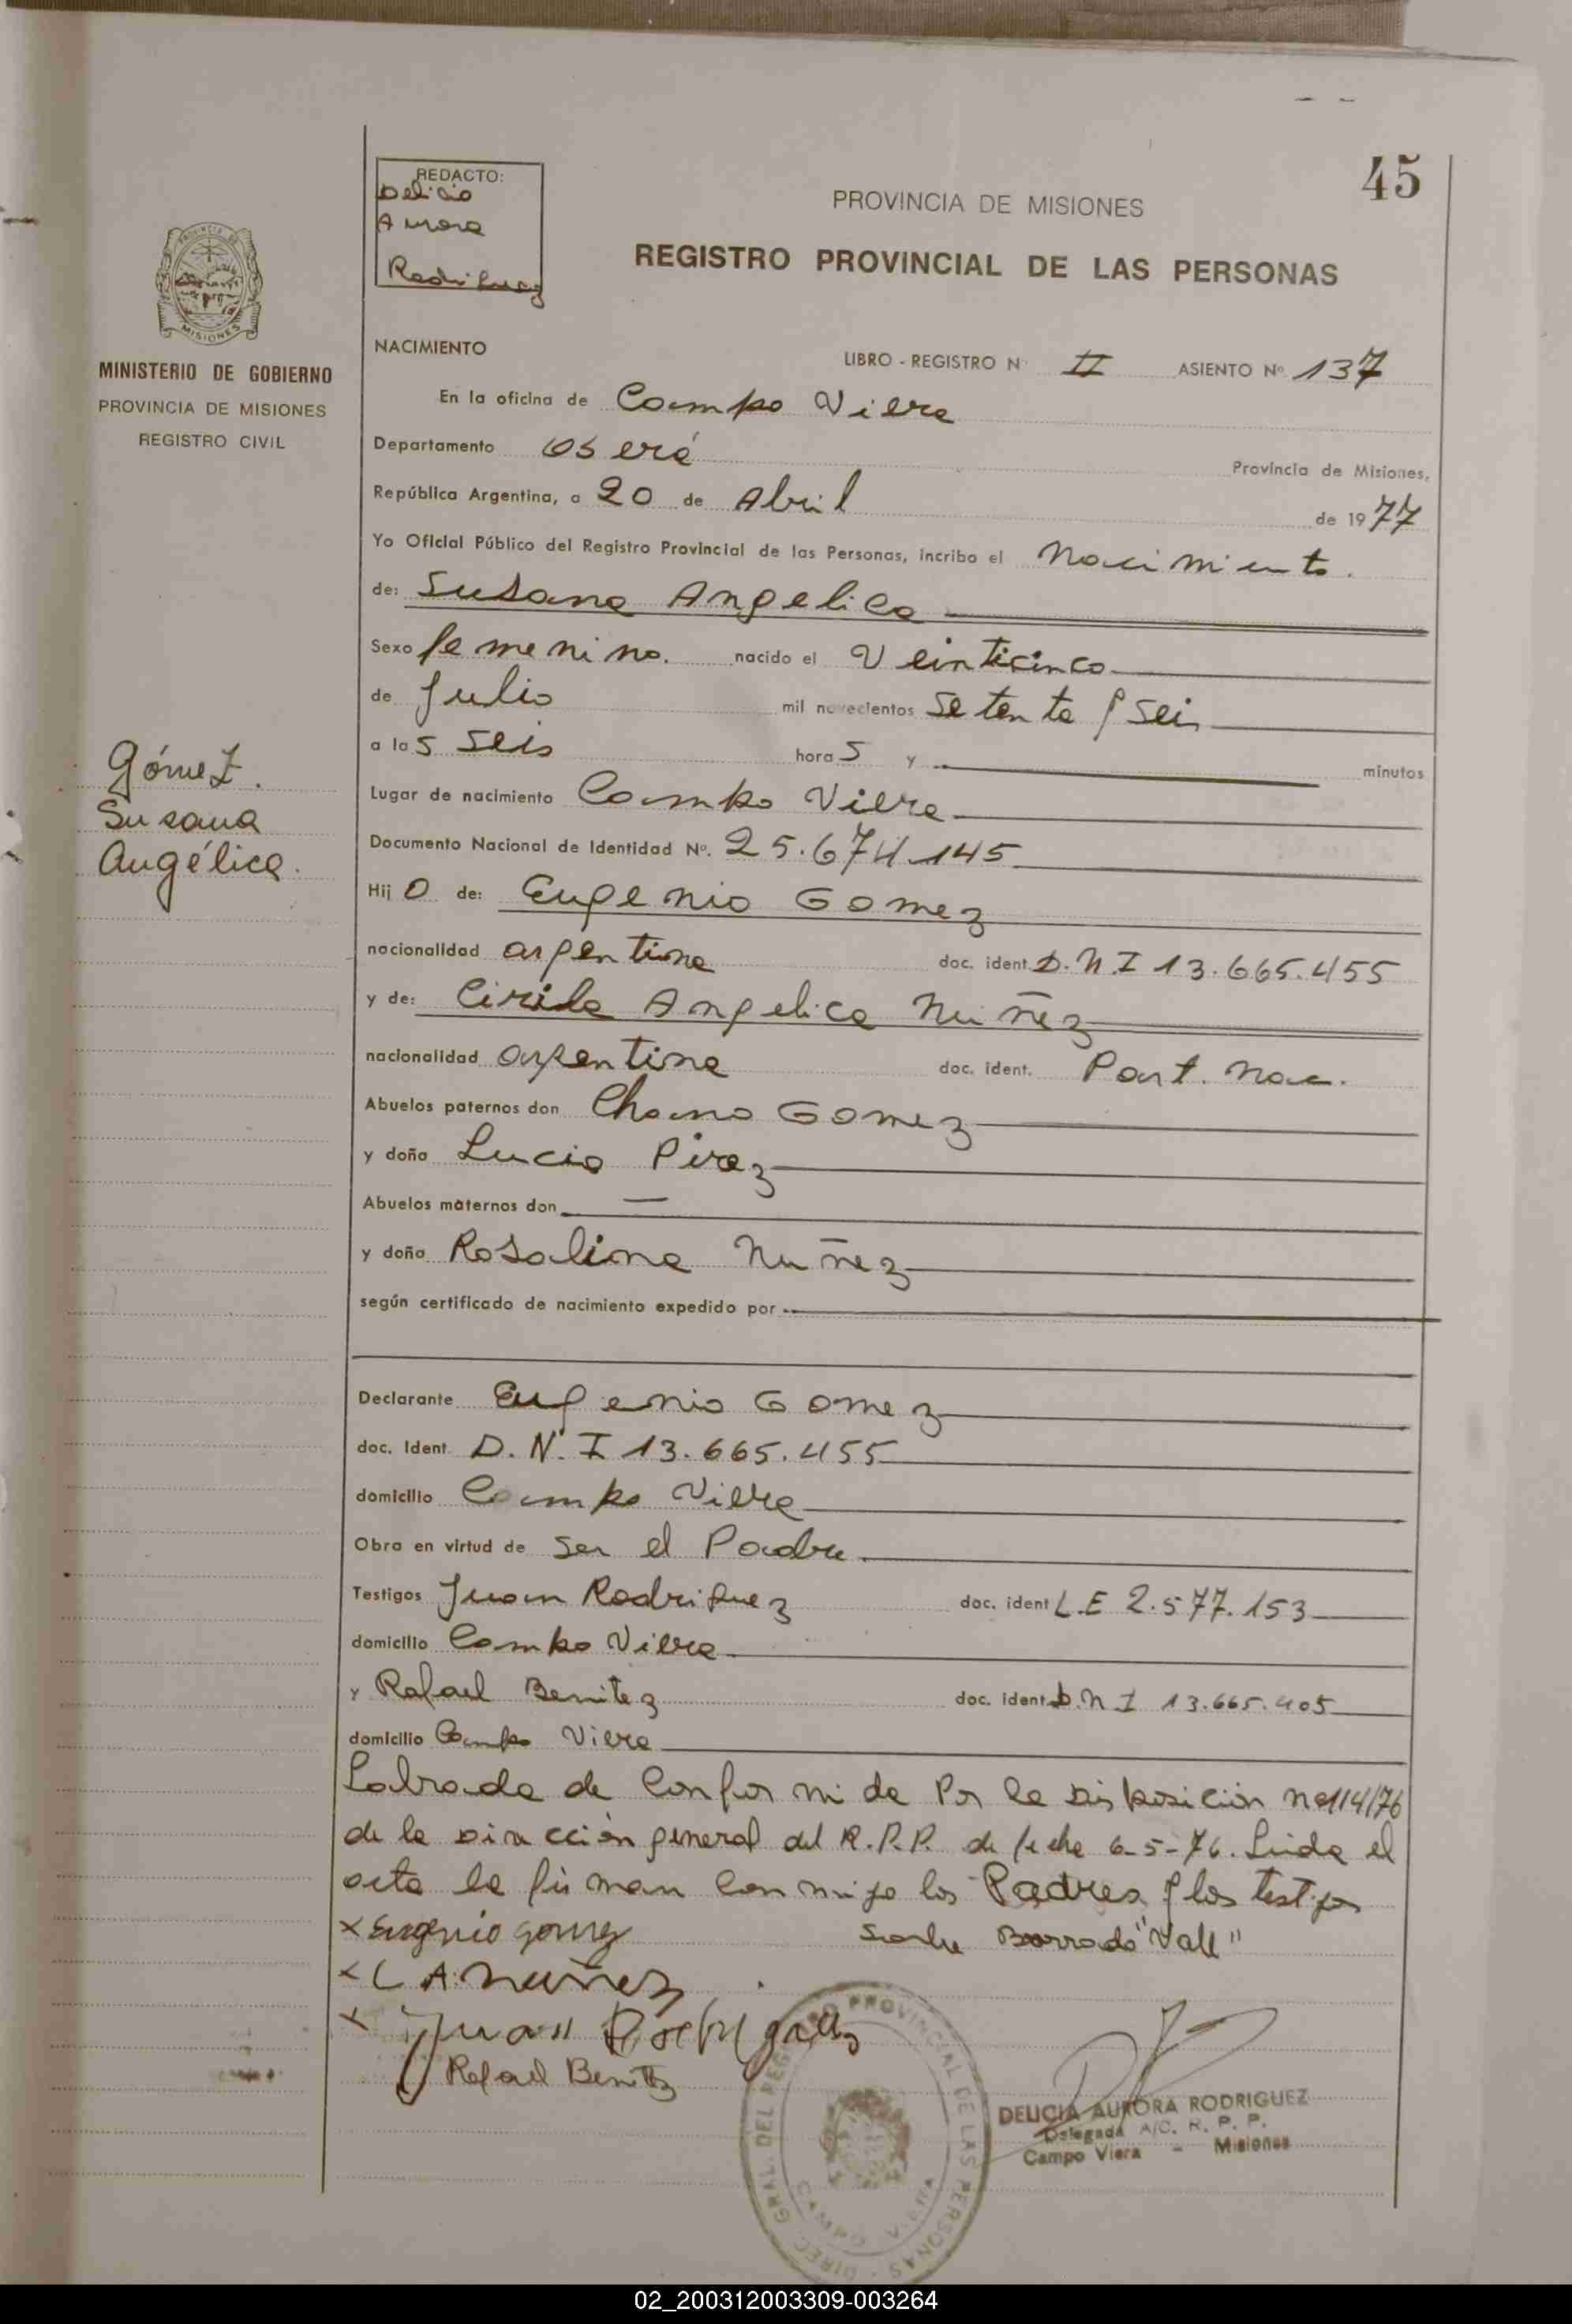 45
REDACTO:
Delicia
Aurora
Rodriguez
PROVINCIA DE MISIONES
REGISTRO PROVINCIAL DE LAS PERSONAS
PROVINCIA DE
MISIONES
MINISTERIO DE GOBIERNO
PROVINCIA DE MISIONES
REGISTRO CIVIL
NACIMIENTO LIBRO - REGISTRO N° II ASIENTO Nº 137
En la oficina de Campo Viera
Departamento Oberá Provincia de Misiones,
República Argentina, a 20 de Abril de 1977
Yo Oficial Público del Registro Provincial de las Personas, incribo el Nacimiento.
de: Susana Angelica
Sexo femenino. nacido el Veinticinco
de Julio mil novecientos setenta y seis
a las seis horas y minutos
Gómez.
Susana
Angélica.
Lugar de nacimiento Campo Viera
Documento Nacional de Identidad Nº. 25.674.145
Hijo de: Eugenio Gomez
nacionalidad argentina doc. ident. D.N.I 13.665.455
y de: Cirila Angelica Nuñez
nacionalidad argentina doc. ident. Part. Nac.
Abuelos paternos don Chano Gomez
y doña Lucia Pirez
Abuelos maternos don —
y doña Rosalina Nuñez
según certificado de nacimiento expedido por
Declarante Eugenio Gomez
doc. Ident. D.N.I 13.665.455
domicilio Campo Viera
Obra en virtud de ser el Padre
Testigos Juan Rodriguez doc. ident L.E 2.577.153
domicilio Campo Viera
y Rafael Benitez doc. ident. D.N I 13.665.405
domicilio Campo Viera
Labrada de Conformida Por la Disposición nº114/76
de la Dirección general del R.P.P. de fecha 6-5-76. Leida el
acta la firman conmigo los Padres y los testigos
x Eugenio gomez Sobre Borrado "Vale"
x C A. Nuñez
x Juan Rodriguez
Rafael Benitez
DIREC. GRAL. DEL REGISTRO PROVINCIAL DE LAS PERSONAS
CAMPO VIERA
DELICIA AURORA RODRIGUEZ
Delegada A/C. R. P. P.
Campo Viera - Misiones
02_200312003309-003264